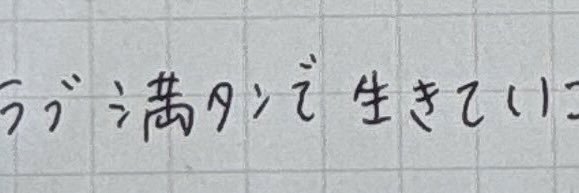 ラブ満タンで生きていこ